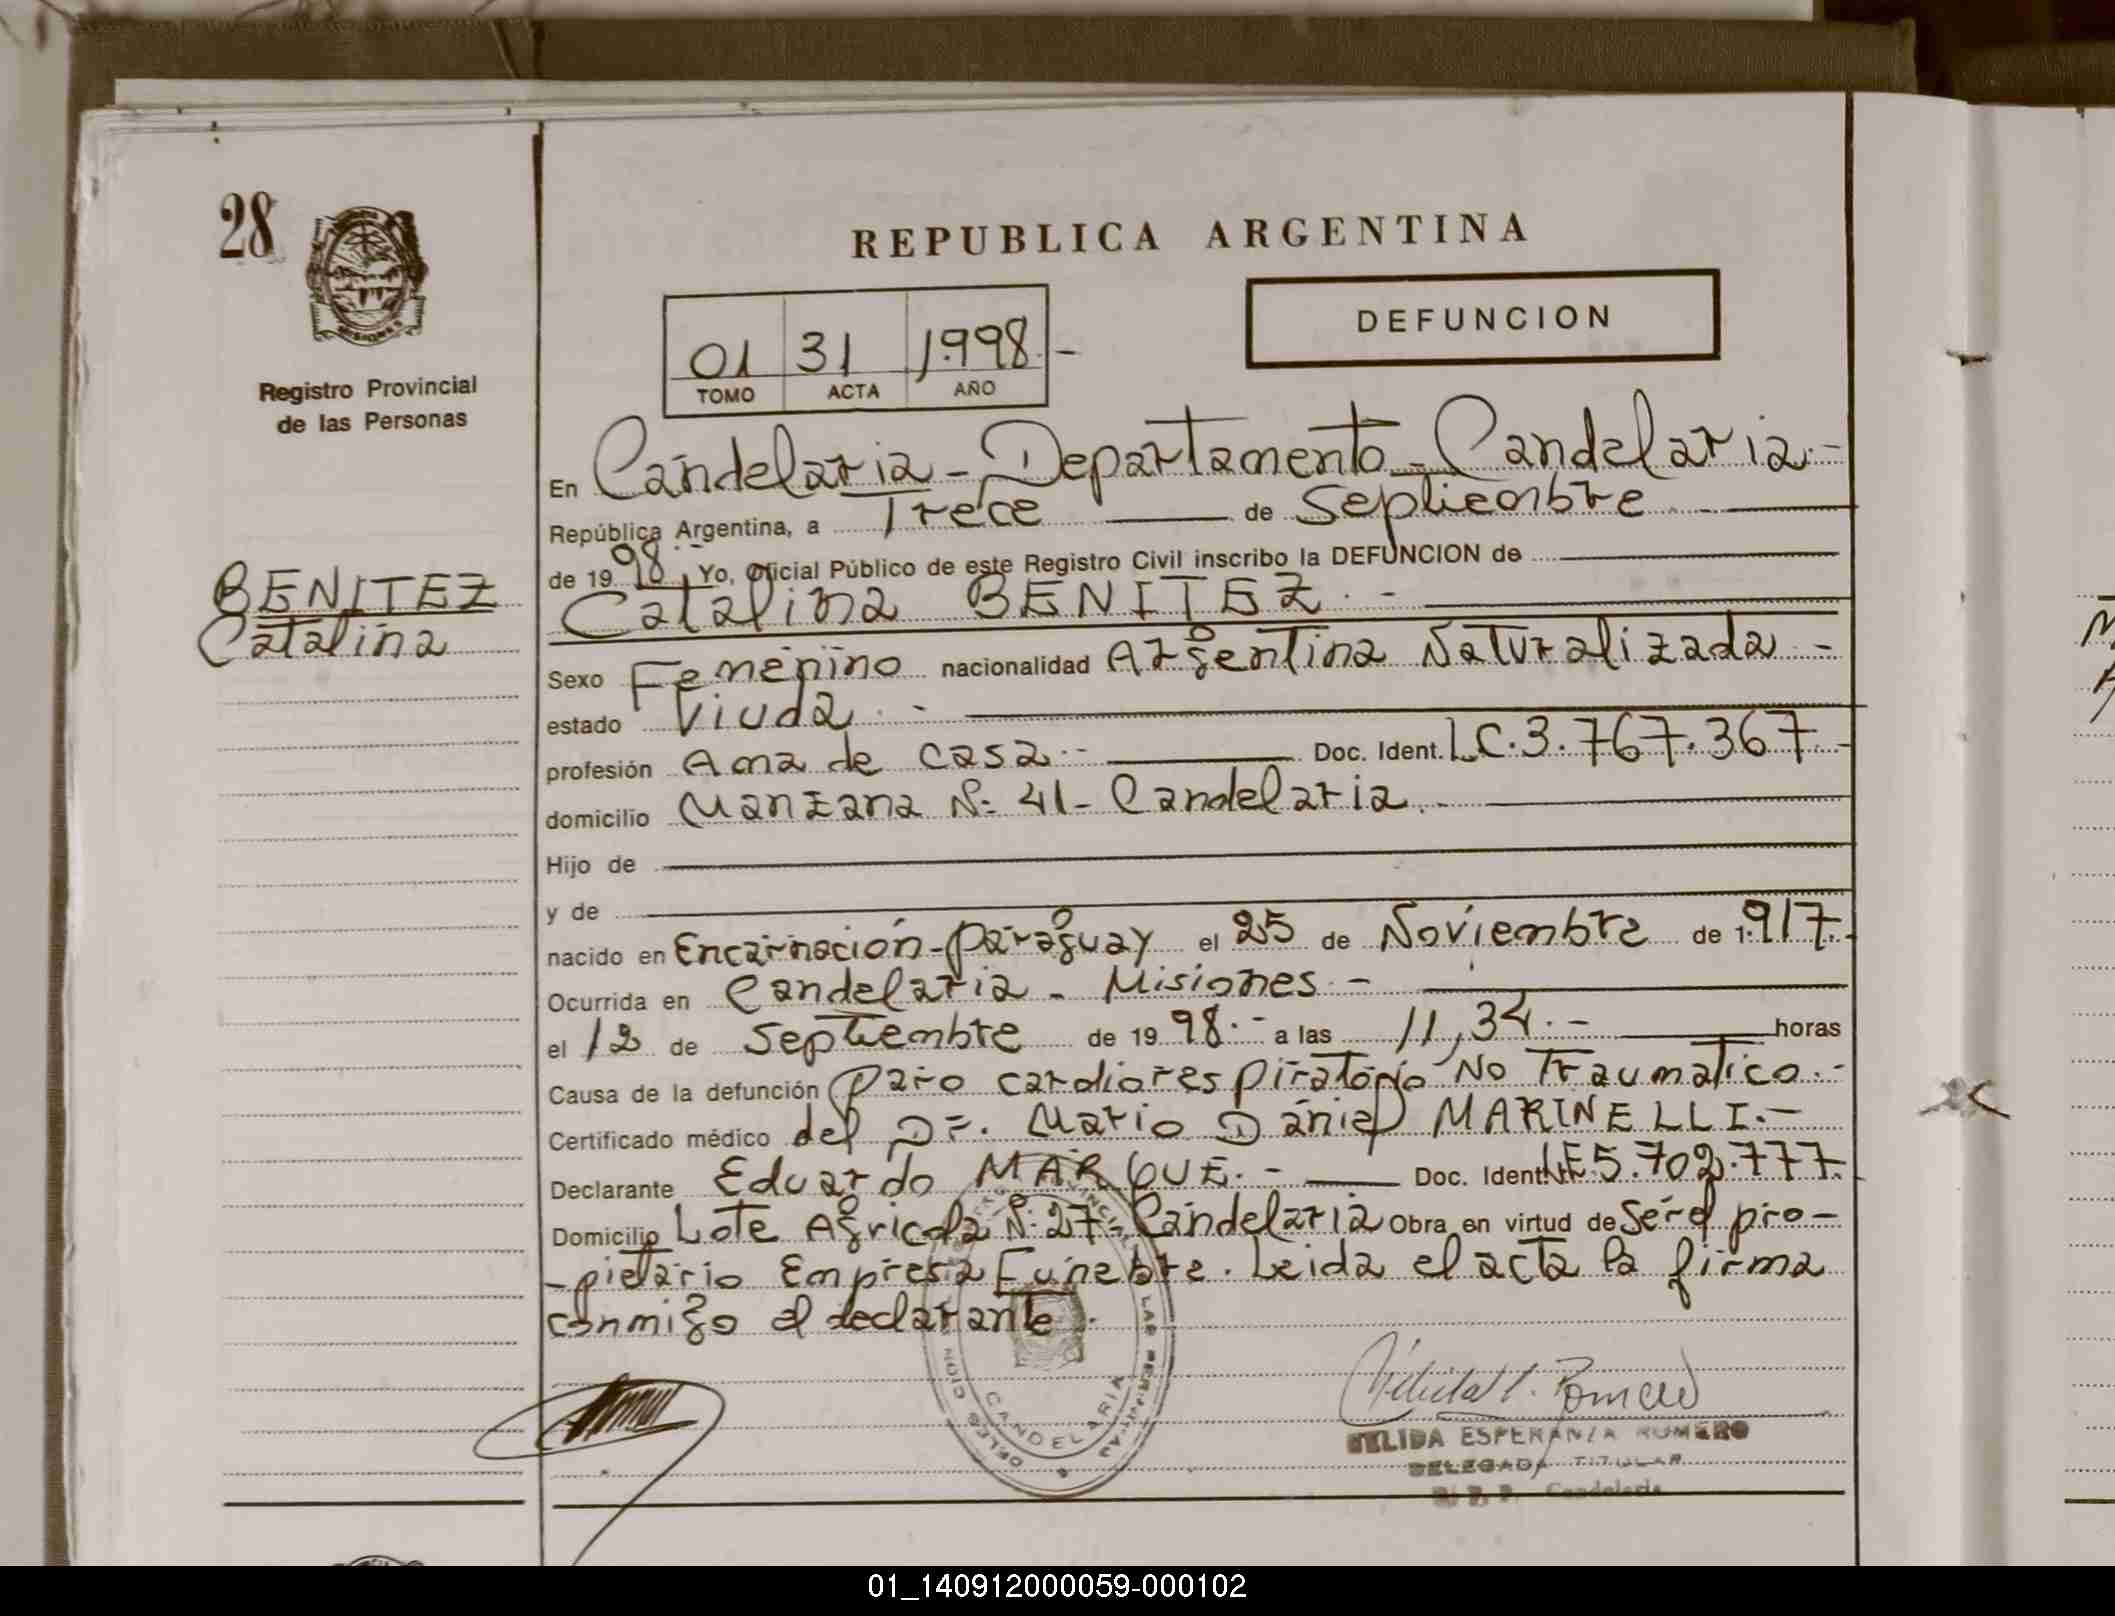 28
MISIONES
Registro Provincial
de las Personas
BENITEZ
Catalina
REPUBLICA ARGENTINA
DEFUNCION
01 31 1.998.-
TOMO ACTA AÑO
En Candelaria - Departamento - Candelaria.-
República Argentina, a Trece de Septiembre
de 19 98.- Yo, Oficial Público de este Registro Civil inscribo la DEFUNCION de
Catalina BENITEZ.-
Sexo Femenino nacionalidad Argentina Naturalizada.-
estado Viuda.-
profesión Ama de casa.- Doc. Ident. LC.3.767.367.-
domicilio Manzana Nº 41- Candelaria.-
Hijo de
y de
nacido en Encarnación-Paraguay el 25 de Noviembre de 1.917.-
Ocurrida en Candelaria - Misiones.-
el 12 de Septiembre de 19 98.- a las 11,34.- horas
Causa de la defunción Paro cardiorespiratorio No Traumatico.-
Certificado médico del Dr. Mario Daniel MARINELLI.-
Declarante Eduardo MARQUE.- Doc. Ident. LE 5.702.777.
Domicilio Lote Agricola Nº 27- Candelaria Obra en virtud de ser el pro-
-pietario Empresa Funebre. Leida el acta la firma
conmigo el declarante.
CANDELARIA
NELIDA ESPERANZA ROMERO
DELEGADA TITULAR
R. P. P. Candelaria
01_140912000059-000102